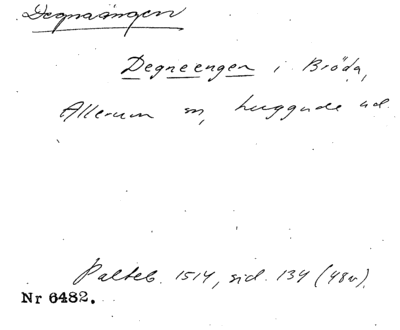 Degnaängen
Degneengen i Bröda,
Allerum sn, huggude ud.
Palteb. 1514, sid. 134 (48v).
Nr 6482.